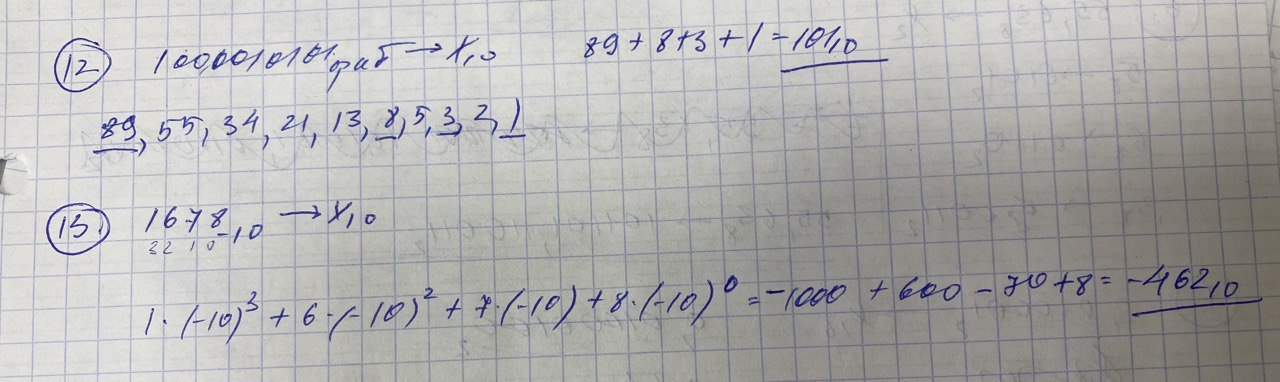 12 1000010101фиб → X₁₀ 89 + 8 + 3 + 1 = 101₁₀
89, 55, 34, 21, 13, 8, 5, 3, 2, 1
13 1678₋₁₀ → X₁₀
3 2 1 0
1 · (-10)³ + 6 · (-10)² + 7 · (-10) + 8 · (-10)⁰ = -1000 + 600 - 70 + 8 = -462₁₀